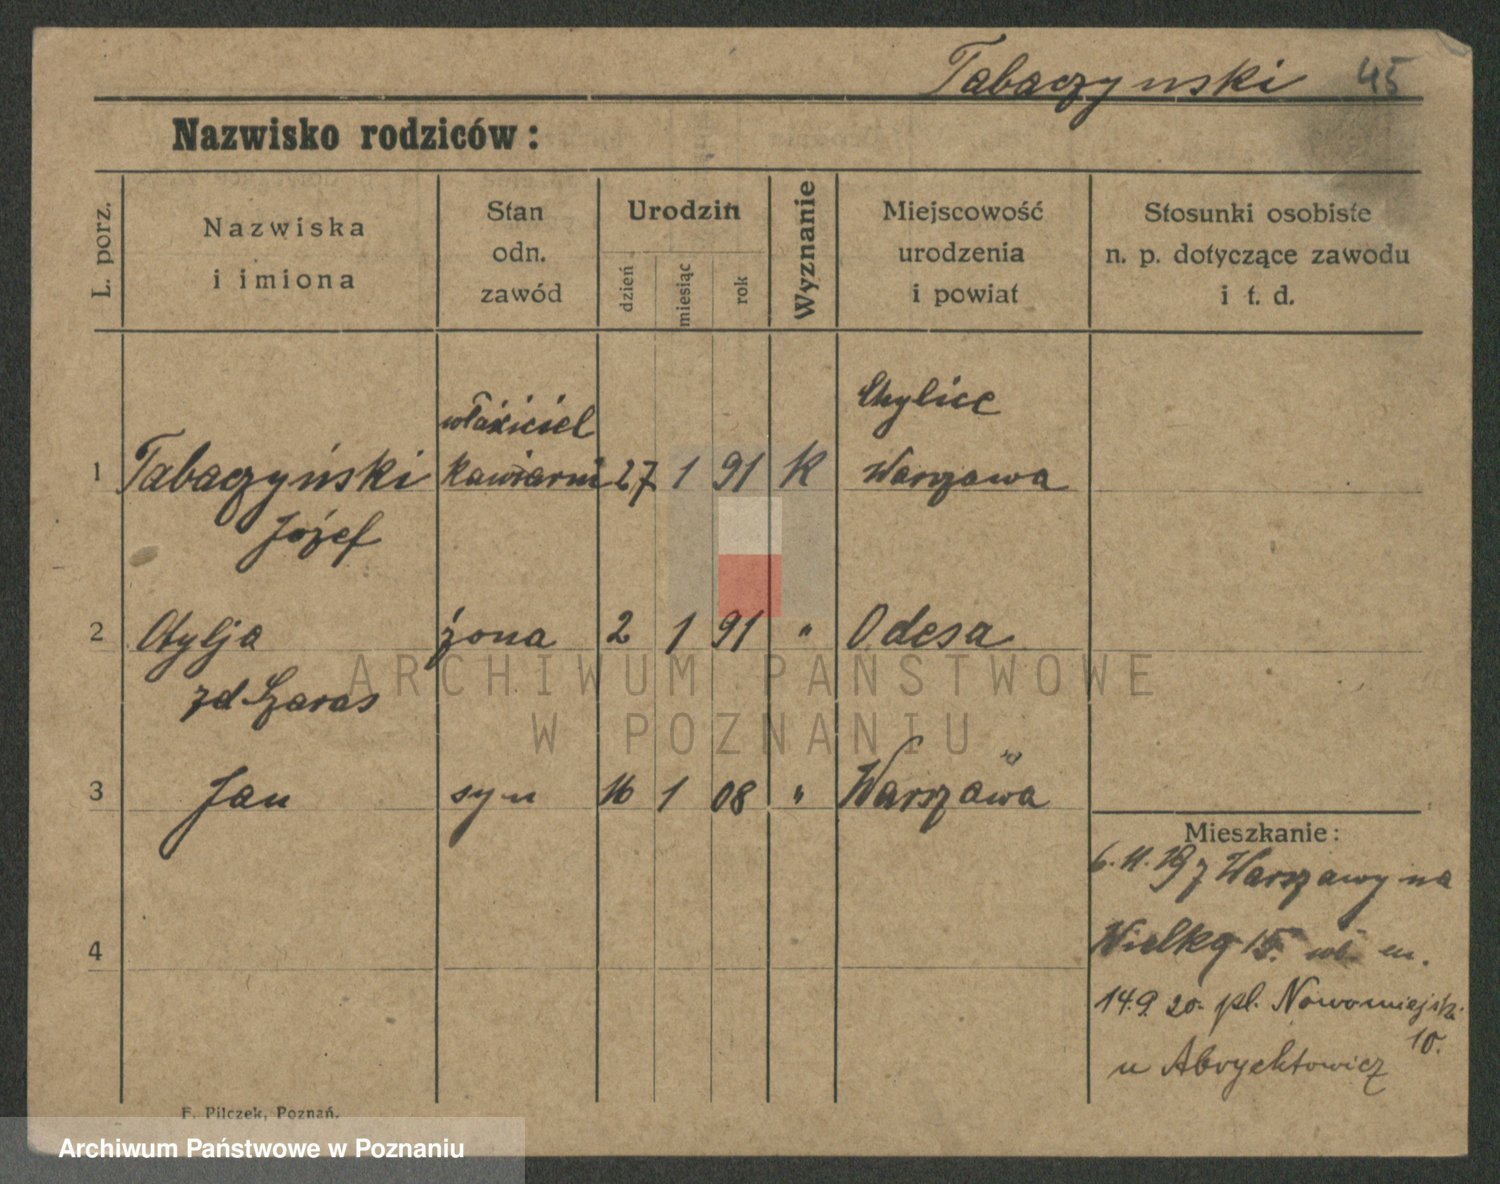 Tabaczynski 45
Nazwisko rodziców:
L. porz.
Nazwiska
i imiona
Stan
odn.
zawód
Urodzin
dzień
miesiąc
rok
Wyznanie
Miejscowość
urodzenia
i powiat
Stosunki osobiste
n. p. dotyczące zawodu
i t. d.
Chylice
właściciel
1 Tabaczyński kawiarni 27 1 91 K Warszawa
Józef
2 Otylja żona 2 1 91 " Odesa
zd Szaras
3 Jan syn 16 1 08 " Warszawa
Mieszkanie:
6. 11. 19 z Warszawy na
4
Wielką 15. wł. m.
14.9. 20. pl. Nowomiejski
10.
u
F. Pilczek, Poznań.
ARCHIWUM PAŃSTWOWE
W POZNANIU
Archiwum Państwowe w Poznaniu